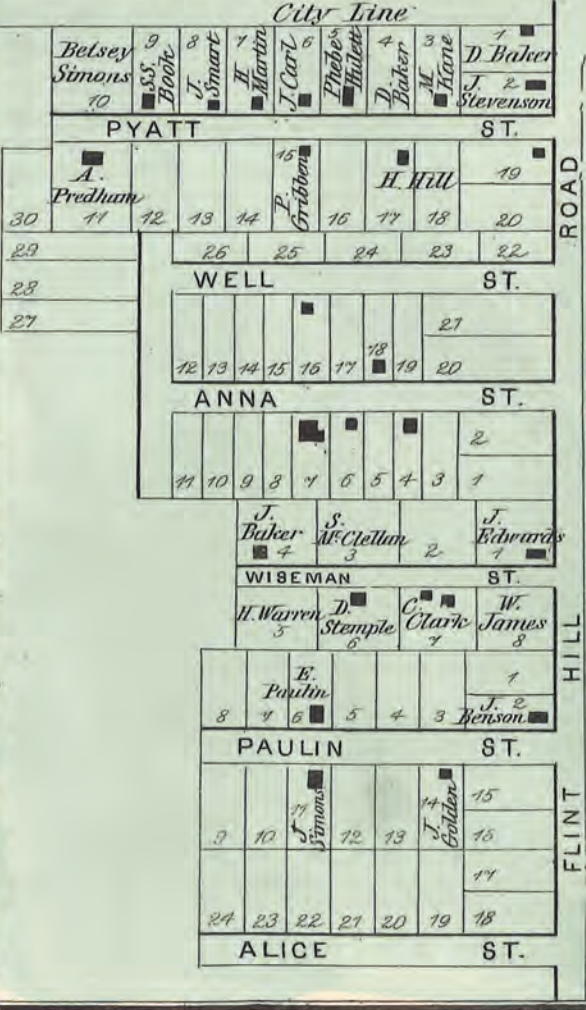 City Line
Betsey
Simons
10
9
S.S.
Book
8
J.
Smart
7
H
Martin
6
J. Carl
5
Phebe
4
D.
Baker
3
M
Kane
1
D. Baker
J. 2
Stevenson
PYATT ST.
30
A.
Predham
11
12
13
14
15
P.
Gribben
16
H. Hill
17
18
19
20
29
28
27
26
25
24
23
22
WELL ST.
12
13
14
15
16
17
18
19
21
20
ANNA ST.
11
10
9
8
7
6
5
4
3
2
1
J.
Baker
4
S.
McClellan
3
2
J.
Edwards
1
WISEMAN ST.
H. Warren
5
D.
Stemple
6
C.
Clark
7
W.
James
8
8
7
E.
Paulin
6
5
4
3
1
J. 2
Benson
PAULIN ST.
9
10
11
J
Simons
12
13
14
J.
Golden
15
16
17
18
24
23
22
21
20
19
ALICE ST.
FLINT HILL ROAD